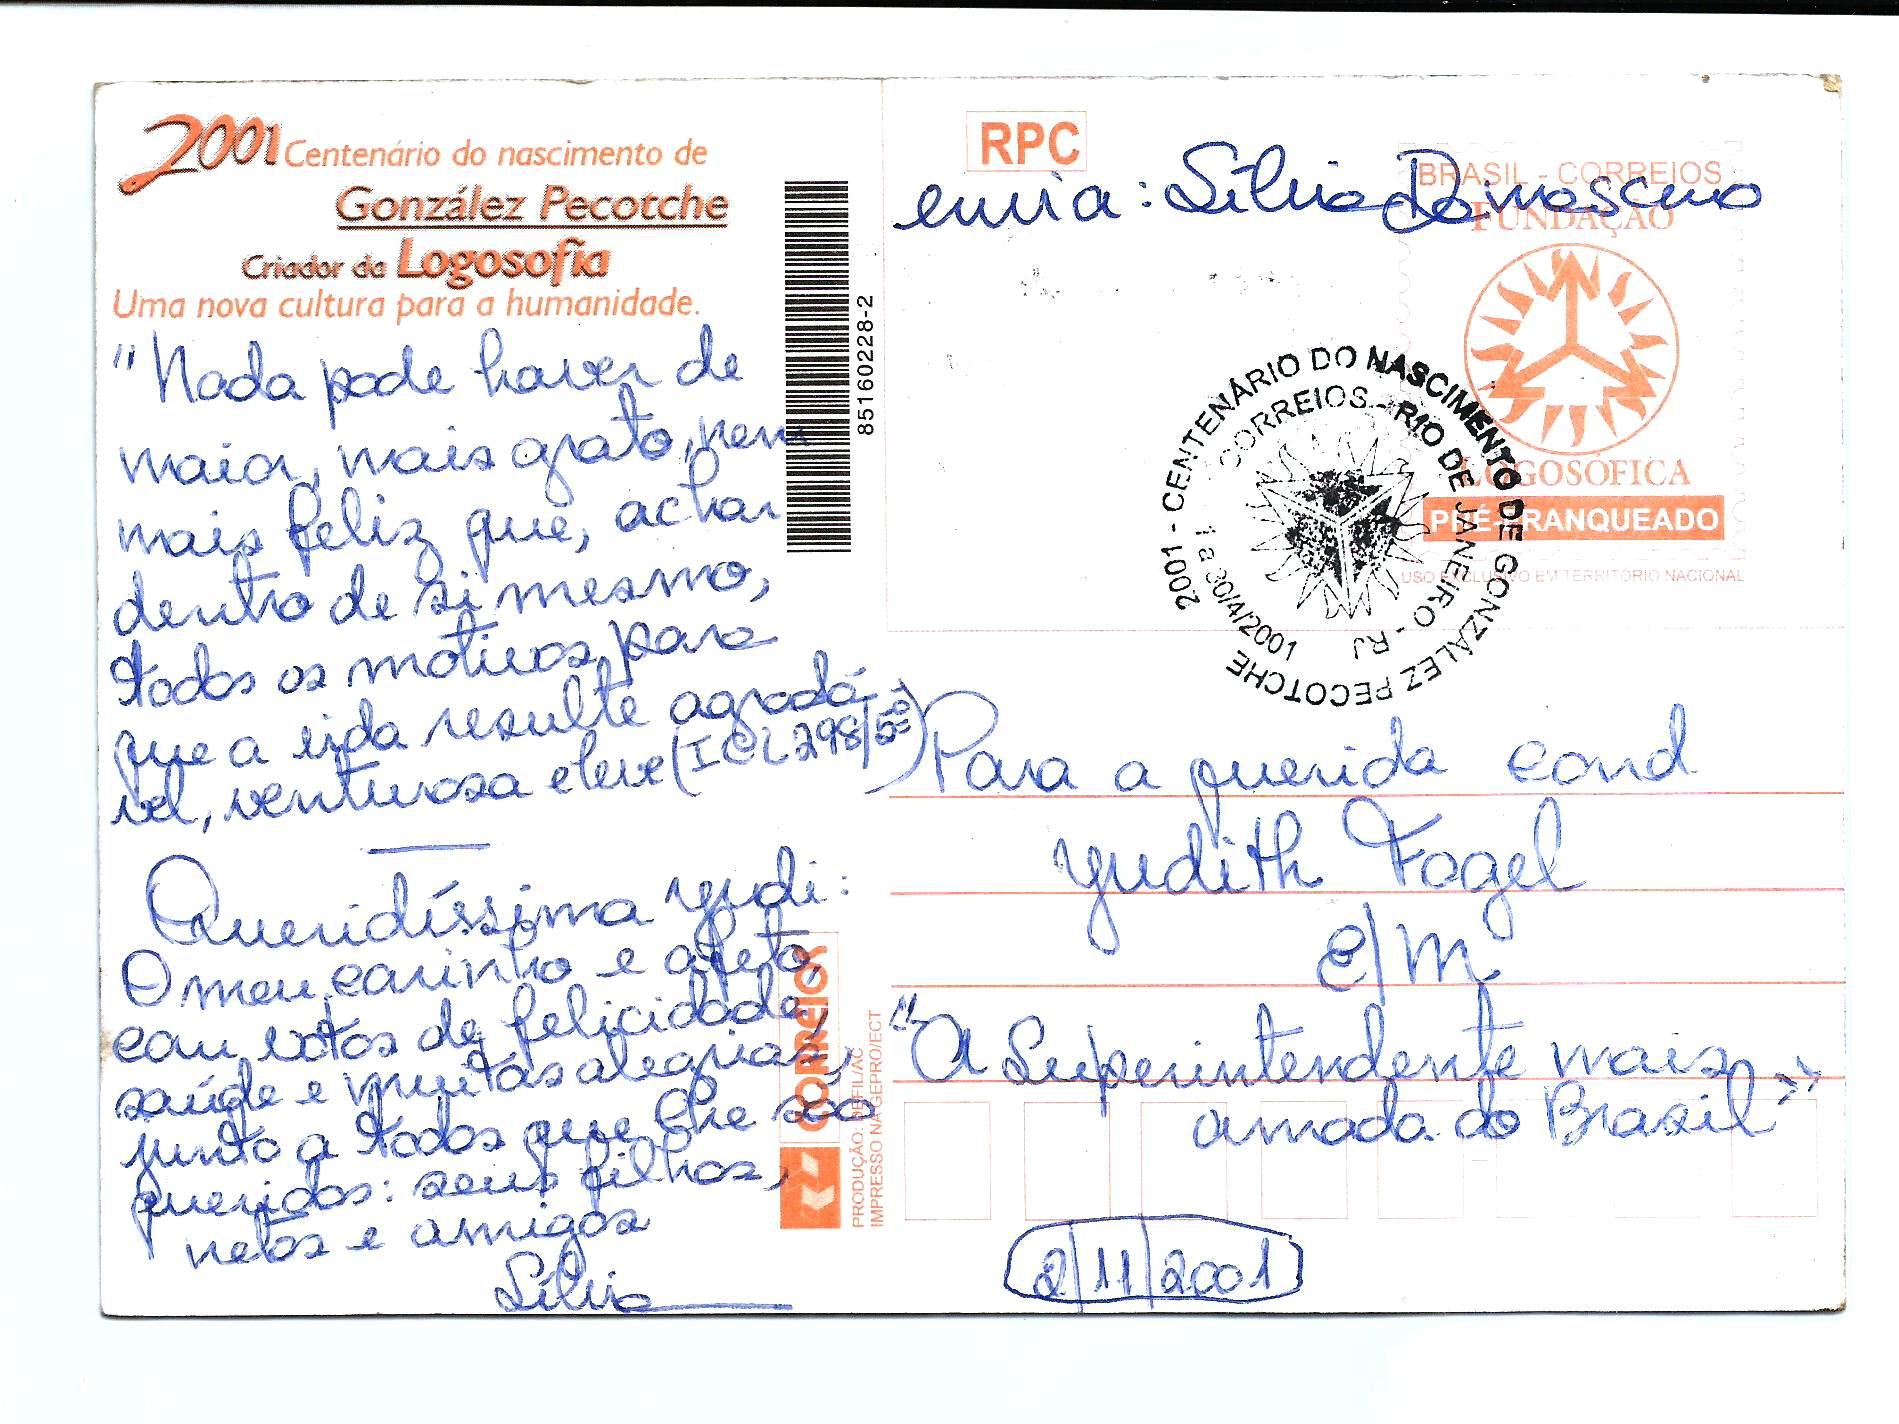 2001 Centenário do nascimento de
González Pecotche
Criador da Logosofia
Uma nova cultura para a humanidade.
"Nada pode haver de
maior, mais grato, nem
mais feliz que, achar
dentro de si mesmo,
todos os motivos para
que a vida resulte agradá-
vel, venturosa e leve (ICL 298/
Queridíssima Yudi:
O meu carinho e afeto,
com votos de felicidade,
saúde e muitas alegrias,
junto a todos que lhe são
queridos: seus filhos,
netos e amigos
Sílvia
85160228-2
CORREIOS
PRODUÇÃO: DEFIL/AC
IMPRESSO NA GEPRO/ECT
RPC
envia: Sílvia Damasceno
BRASIL - CORREIOS
FUNDAÇÃO
LOGOSÓFICA
PRÉ-FRANQUEADO
USO EXCLUSIVO EM TERRITÓRIO NACIONAL
2001 - CENTENÁRIO DO NASCIMENTO DE GONZÁLEZ PECOTCHE
CORREIOS - RIO DE JANEIRO - RJ
1 a 30/4/2001
Para a querida cond
Yudith Fogel
E/M
"A Superintendente mais
amada do Brasil"
2/11/2001